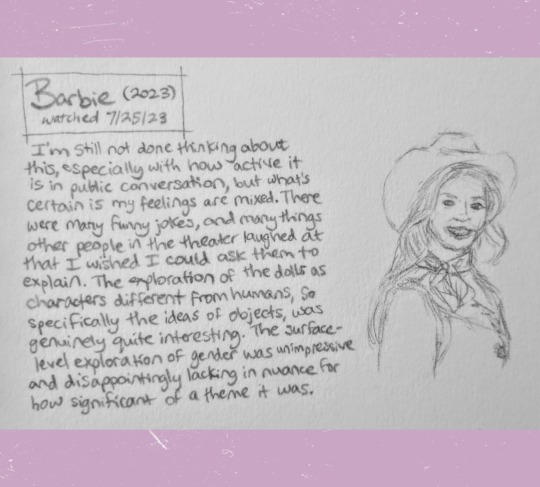 Barbie (2023)
watched 7/25/23
I'm still not done thinking about
this, especially with how active it
is in public conversation, but what's
certain is my feelings are mixed. There
were many funny jokes, and many things
other people in the theater laughed at
that I wished I could ask them to
explain. The exploration of the dolls as
characters different from humans, so
specifically the ideas of objects, was
genuinely quite interesting. The surface-
level exploration of gender was unimpressive
and disappointingly lacking in nuance for
how significant of a theme it was.